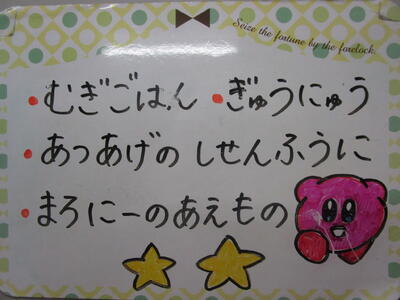 Seize the fortune by the forelock.
・むぎごはん ・ぎゅうにゅう
・あつあげのしせんふうに
・まろにーのあえもの